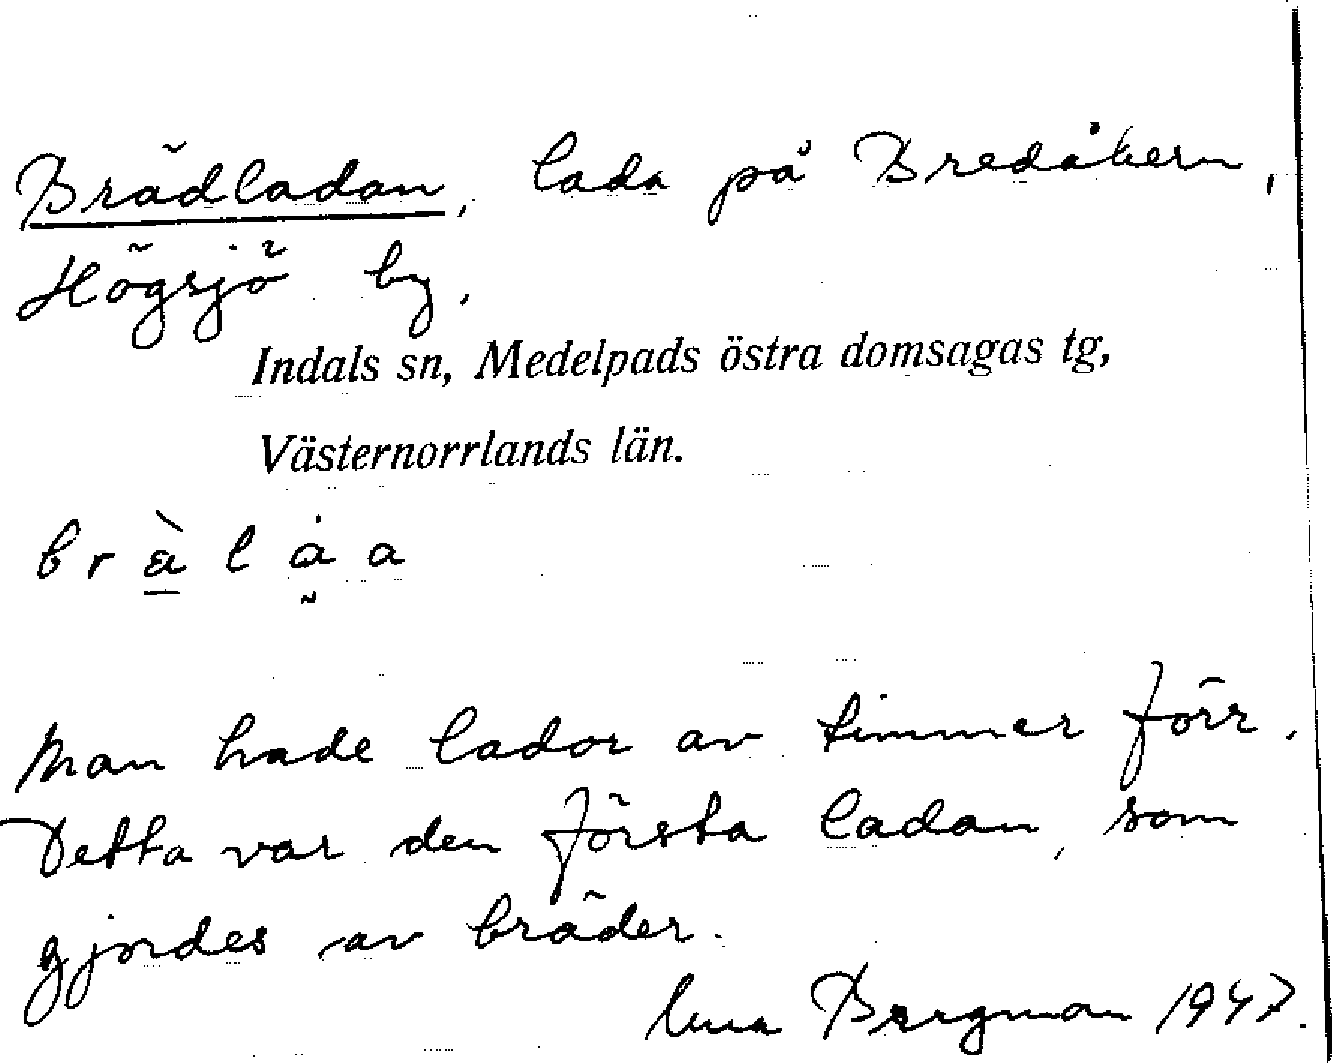 Brädladan, lada på Bredåkern,
Högsjö by.
Indals sn, Medelpads östra domsagas tg,
Västernorrlands län.
Man hade lador av timmer förr.
Detta var den första ladan, som
gjordes av bräder.
Bergman 1947.